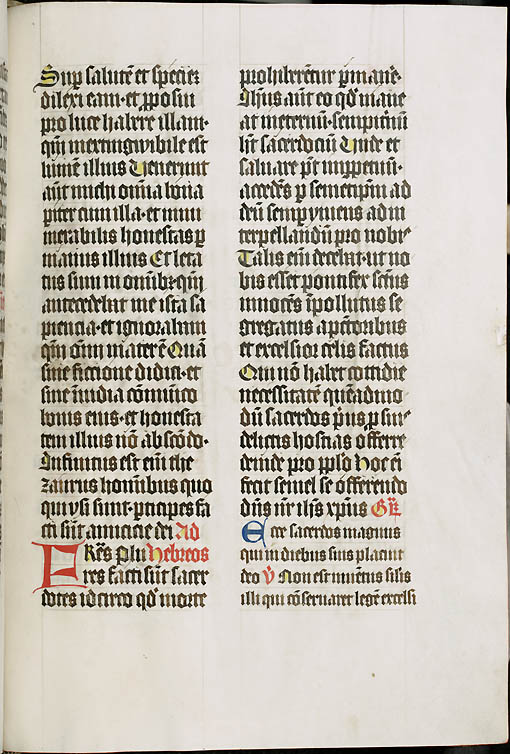 Sup̱ salutē et speciem
dilexi eam · et p̱posui
pro luce habere illam ·
qm̄ inextingwibile est
lumē illius Venerunt
aūt michi om̄ia bona
pariter cum illa · et innu
merabilis honestas p̱
manus illius Et leta
tus sum in omībꝫ · qm̄
antecedebat me ista sa
piencia · et ignorabam
qm̄ om̄ium mater ē Quā
sine fictione didici · et
sine īuidia cōmunico
bonis eius · et honesta
tem illius nō abscōdo ·
Infinitus est em̄ the
zaurus hominibus quo
qui vsi sunt · p̱ticipes fa
cti sūt amicicie dei Ad
Fr̄es plu Hebreos
res facti sūt sacer
dotes idcirco qd̄ morte
prohiberētur p̱manē ·
Ihus aūt eo qd̄ mane
at in eternū · sempit̄nū
hēt sacerdociū Unde et
saluare pt̄ imp̱petuū ·
accedēs p̱ semetip̄m ad
deū semp̱ viuens ad in
terpellandū pro nobis
Talis em̄ decebat · ut no
bis esset pontifex sc̄tus
innocēs īpollutus se
gregatus a pc̄toribus
et excelsior celis factus
Qui nō habet cottidie
necessitatē quēadmo
dū sacerdos p̄us p̱ suis
delictis hostias offerre
deinde pro pp̄lo Hoc em̄
fecit semel se offerendo
dn̄s nr̄ ih̄s xp̄us Gr̄
Ecce sacerdos magnus
qui in diebus suis placuit
deo V̄ Non est inuentus silis
illi qui cōseruaret legē excelsi